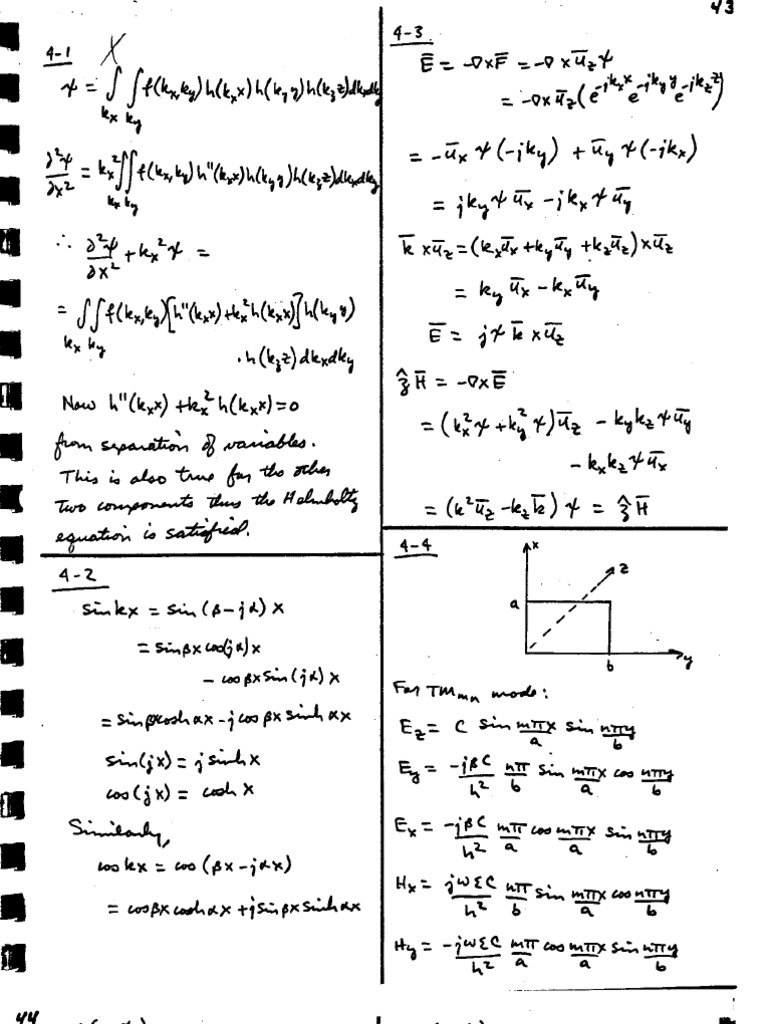 43
4-1
X
ψ = ∫∫ f(kx,ky) h(kxx) h(kyy) h(kzz) dkxdky
kx ky
∂²ψ/∂x² = kx² ∫∫ f(kx,ky) h''(kxx) h(kyy) h(kzz) dkxdky
kx ky
∴ ∂²ψ/∂x² + kx²ψ =
= ∫∫ f(kx,ky) [h''(kxx) + kx² h(kxx)] h(kyy)
kx ky
· h(kzz) dkxdky
Now h''(kxx) + kx² h(kxx) = 0
from separation of variables.
This is also true for the other
two components thus the Helmholtz
equation is satisfied.
4-2
sin kx = sin (β - jα) x
= sin βx cos(jα)x
- cos βx sin (jα) x
= sin βx cosh αx - j cos βx sinh αx
sin(jx) = j sinh x
cos(jx) = cosh x
Similarly,
cos kx = cos (βx - jαx)
= cos βx cosh αx + j sin βx sinh αx
4-3
Ē = -∇×F̄ = -∇×ūzψ
= -∇×ūz(e^-jkxx e^-jkyy e^-jkzz)
= -ūxψ(-jky) + ūyψ(-jkx)
= jkyψūx - jkxψūy
k̄×ūz = (kxūx + kyūy + kzūz)×ūz
= kyūx - kxūy
Ē = jψk̄×ūz
ẑH̄ = -∇×Ē
= (kx²ψ + ky²ψ)ūz - kykzψūy
- kxkzψūx
= (k²ūz - kzk̄)ψ = ẑH̄
4-4
x
z
a
b
y
For TMmn mode:
Ez = C sin mπx/a sin nπy/b
Ey = -jβC/h² nπ/b sin mπx/a cos nπy/b
Ex = -jβC/h² mπ/a cos mπx/a sin nπy/b
Hx = jωεC/h² nπ/b sin mπx/a cos nπy/b
Hy = -jωεC/h² mπ/a cos mπx/a sin nπy/b
44